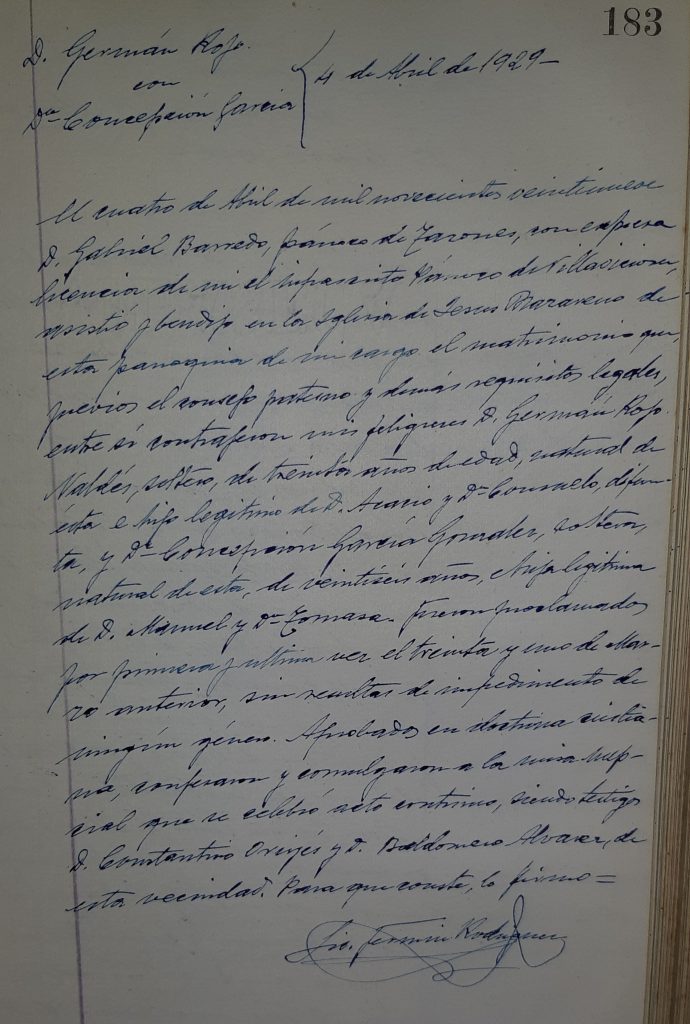 183
D. Germán Rojo.
con
Dña Concepción García
4 de Abril de 1929-
El cuatro de Abril de mil novecientos veintinueve
D. Gabriel Barredo, párroco de Tazones, con expresa
licencia de mi el infrascrito Párroco de Villaviciosa,
asistió y bendijo en la Iglesia de Jesus Nazareno de
esta parroquia de mi cargo el matrimonio que,
previos el consejo paterno y demás requisitos legales,
entre sí contrajeron mis feligreses D. Germán Rojo
Valdés, soltero, de treinta años de edad, natural de
ésta e hijo legítimo de D. Acacio y Dª Consuelo, difun-
ta, y Dª Concepción García González, soltera,
natural de esta, de veintiseis años, e hija legítima
de D. Manuel y Dª Tomasa. Fueron proclamados
por primera y última vez el treinta y uno de Mar-
zo anterior, sin resultas de impedimento de
ningún género. Aprobados en doctrina cristia-
na, confesaron y comulgaron a la misa nup-
cial que se celebró acto continuo, siendo testigos
D. Constantino y D. Baldomero Alvarez, de
esta vecindad. Para que conste, lo firmo =
Lic. Fermín Rodríguez